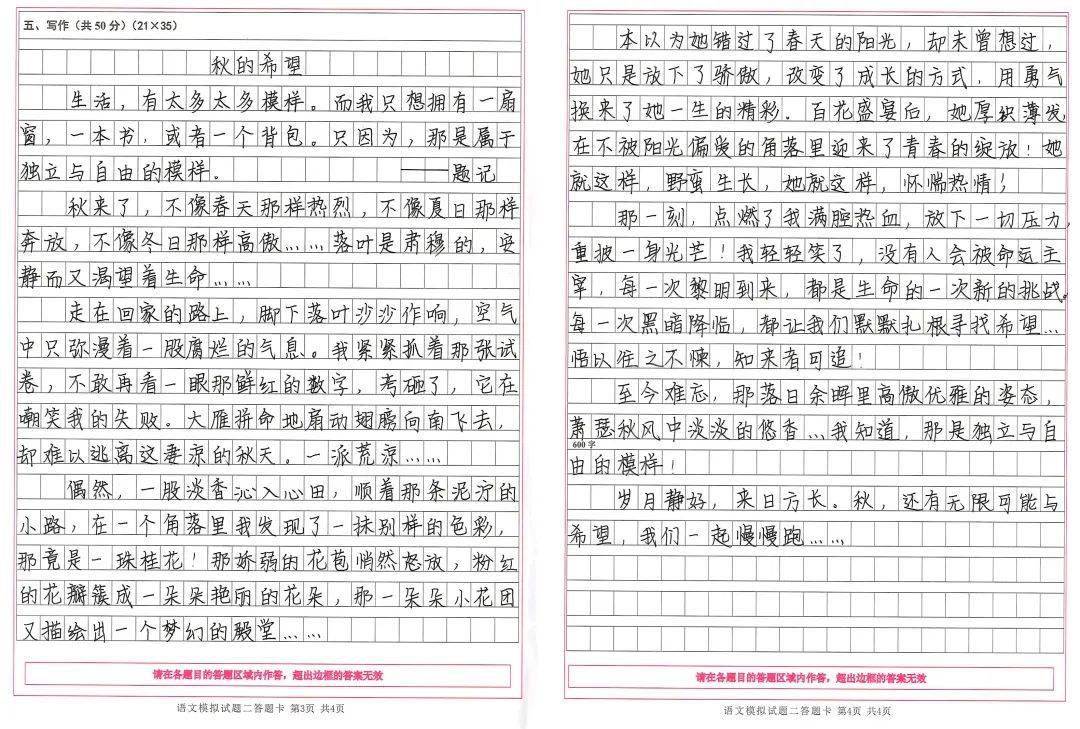 五、写作（共50分）（21×35）
秋的希望
生活，有太多太多模样。而我只想拥有一扇
窗，一本书，或者一个背包。只因为，那是属于
独立与自由的模样。 ——题记
秋来了，不像春天那样热烈，不像夏日那样
奔放，不像冬日那样高傲……落叶是肃穆的，安
静而又渴望着生命……
走在回家的路上，脚下落叶沙沙作响，空气
中只弥漫着一股腐烂的气息。我紧紧抓着那张试
卷，不敢再看一眼那鲜红的数字，考砸了，它在
嘲笑我的失败。大雁拼命地扇动翅膀向南飞去，
却难以逃离这凄凉的秋天。一派荒凉……
偶然，一股淡香沁入心田，顺着那条泥泞的
小路，在一个角落里我发现了一抹别样的色彩，
那竟是一珠桂花！那娇弱的花苞悄然怒放，粉红
的花瓣簇成一朵朵艳丽的花朵，那一朵朵小花团
又描绘出一个梦幻的殿堂……
请在各题目的答题区域内作答，超出边框的答案无效
语文模拟试题二答题卡 第3页 共4页
本以为她错过了春天的阳光，却未曾想过，
她只是放下了骄傲，改变了成长的方式，用勇气
换来了她一生的精彩。百花盛宴后，她厚积薄发
在不被阳光偏爱的角落里迎来了青春的绽放！她
就这样，野蛮生长，她就这样，怀揣热情！
那一刻，点燃了我满腔热血，放下一切压力，
重披一身光芒！我轻轻笑了，没有人会被命运主
宰，每一次黎明到来，都是生命的一次新的挑战。
每一次黑暗降临，都让我们默默扎根寻找希望…
悟以往之不谏，知来者可追！
至今难忘，那落日余晖里高傲优雅的姿态，
萧瑟秋风中淡淡的悠香…我知道，那是独立与自
600字
由的模样！
岁月静好，来日方长。秋，还有无限可能与
希望，我们一起慢慢跑……
请在各题目的答题区域内作答，超出边框的答案无效
语文模拟试题二答题卡 第4页 共4页